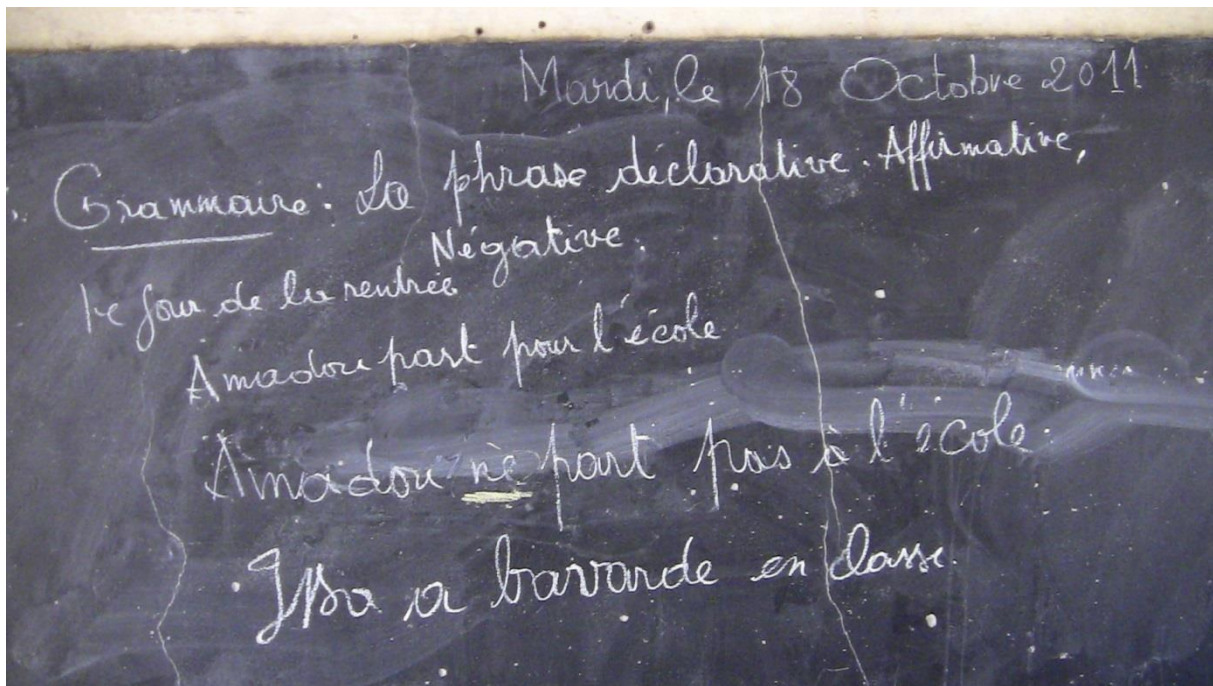 Mardi, le 18 Octobre 2011
Grammaire : La phrase déclarative. Affirmative,
Négative.
1e jour de la rentrée
Amadou part pour l'école
Amadou ne part pas à l'école.
Issa a bavarde en classe.